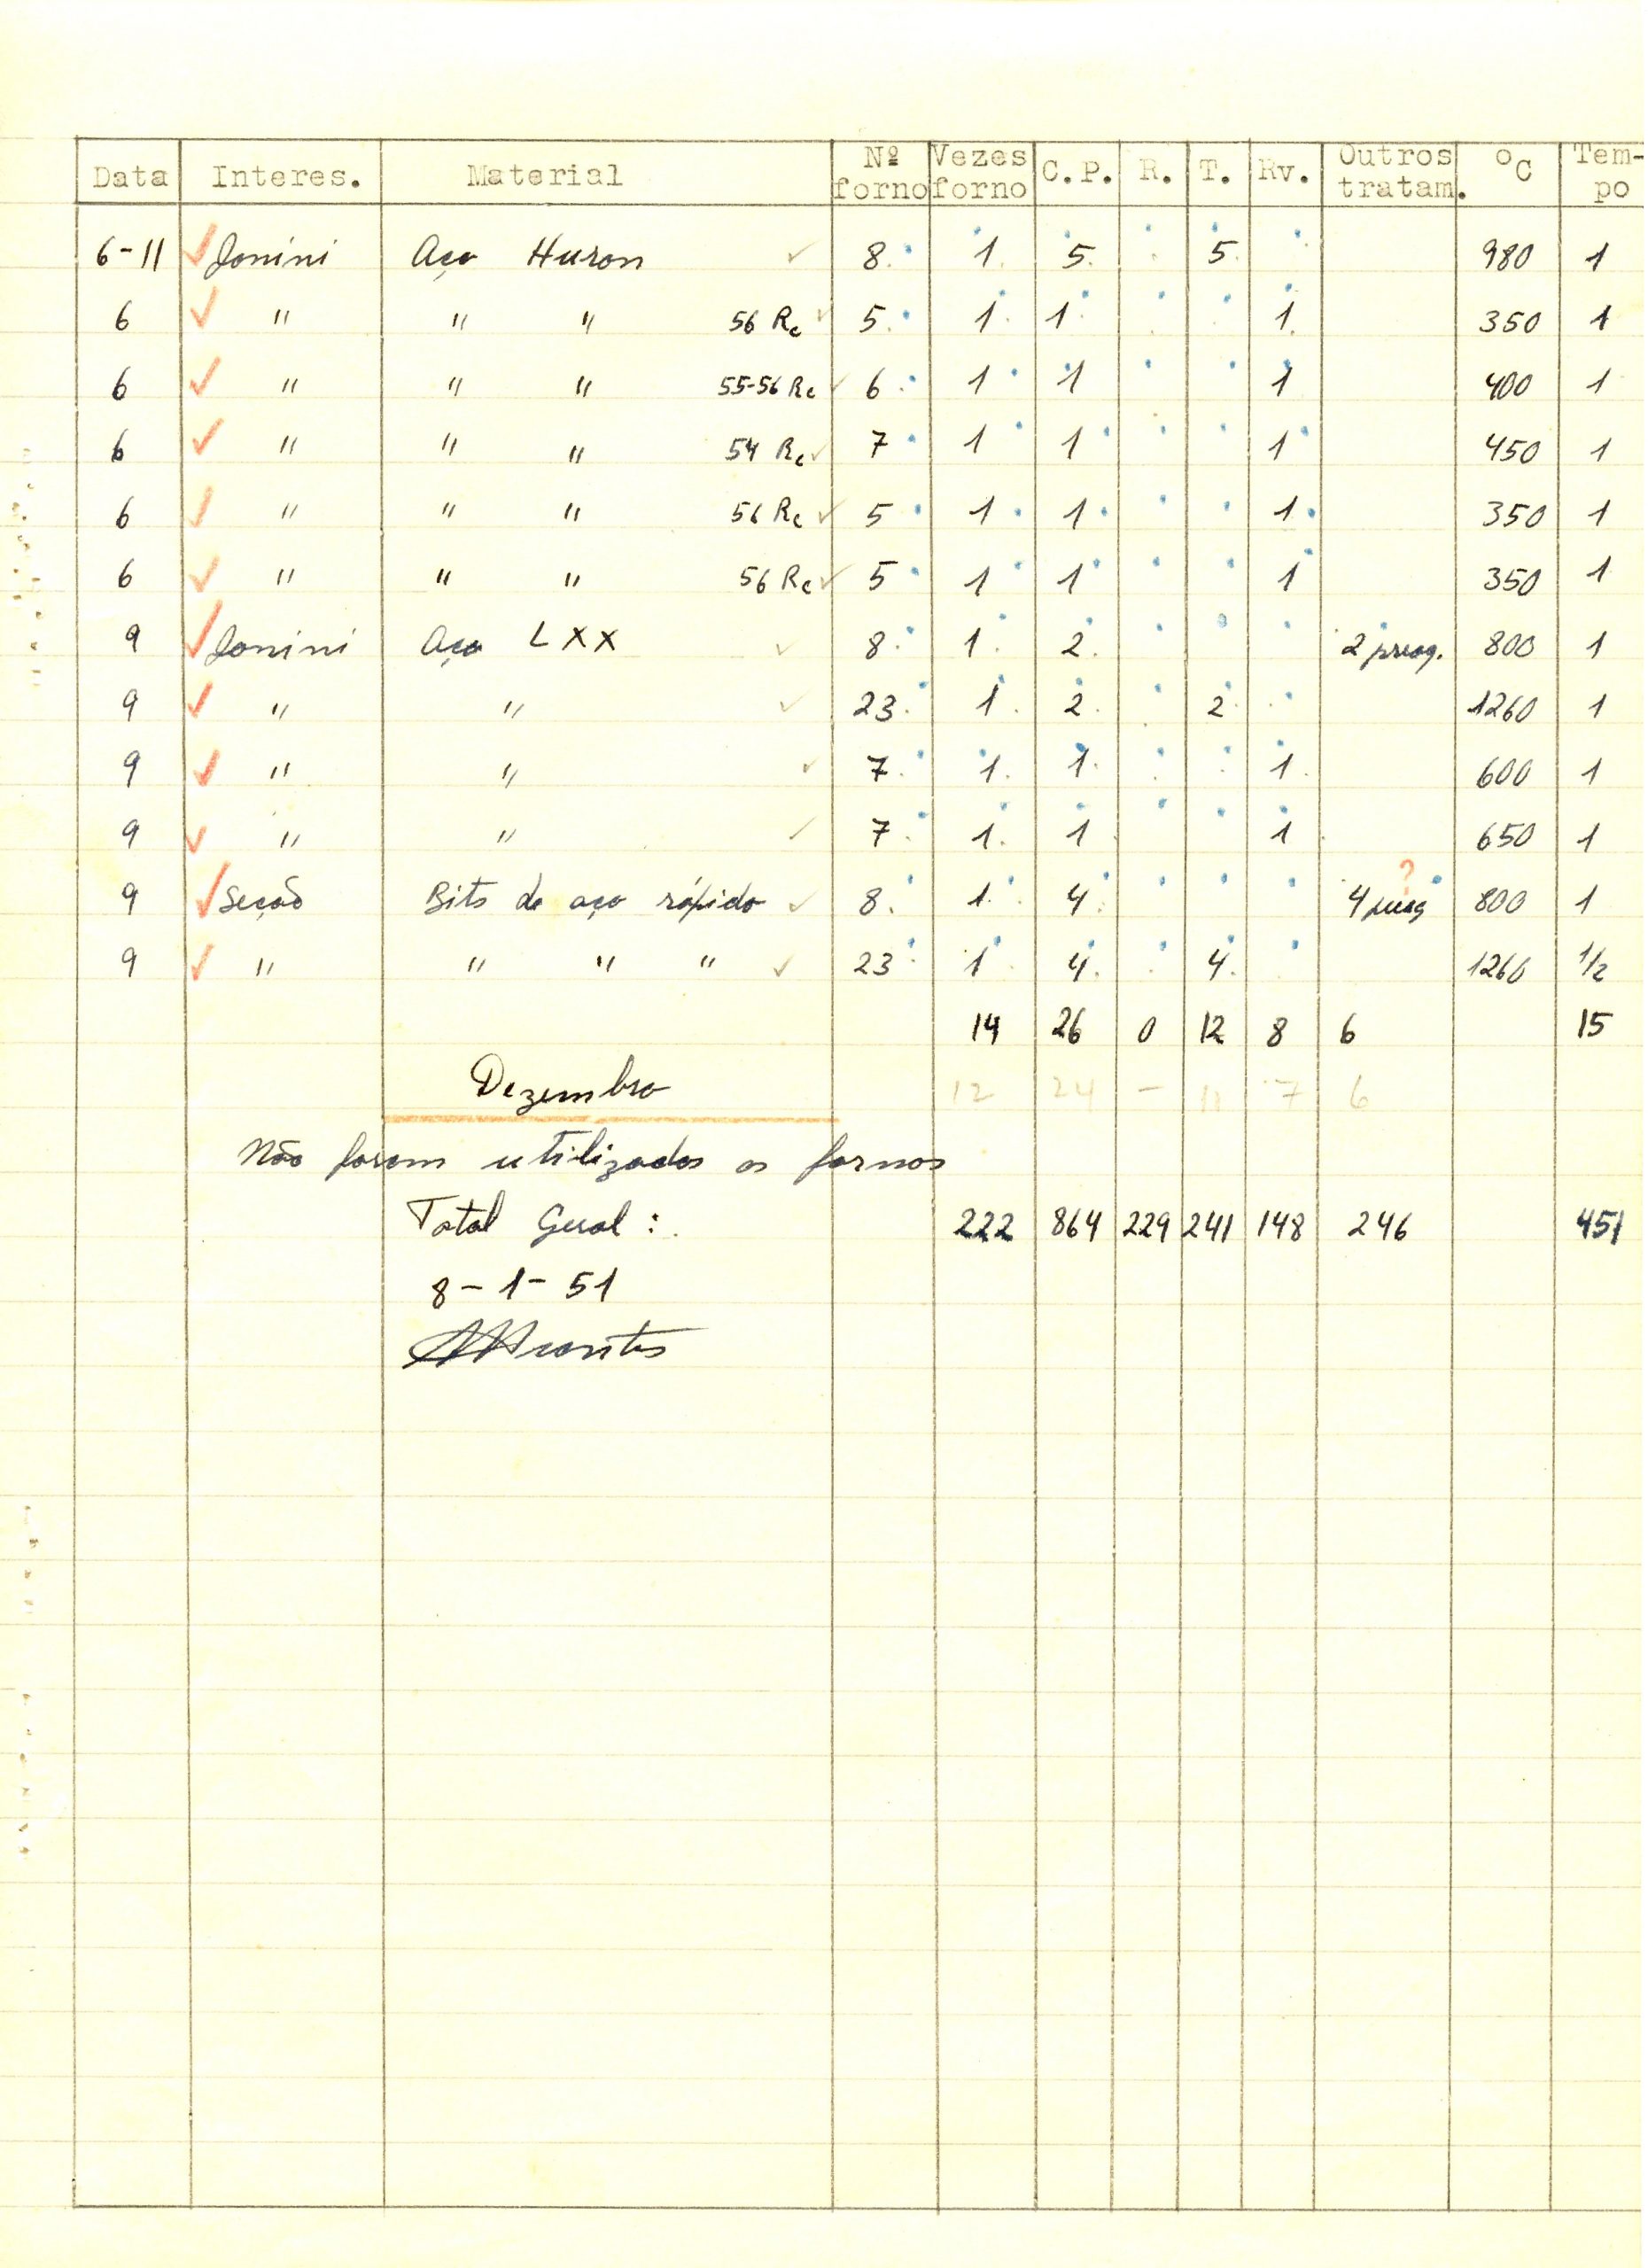 Data Interes. Material Nº forno Vezes forno C.P. R. T. Rv. Outros tratam. ºC Tem-po
6-11 Jonini Aço Huron 8 1 5 5 980 1
6 " " " 56 Rc 5 1 1 1 350 1
6 " " " 55-56 Rc 6 1 1 1 400 1
6 " " " 54 Rc 7 1 1 1 450 1
6 " " " 56 Rc 5 1 1 1 350 1
6 " " " 56 Rc 5 1 1 1 350 1
9 Jonini Aço LXX 8 1 2 2 preaq. 800 1
9 " " 23 1 2 2 1260 1
9 " " 7 1 1 1 600 1
9 " " 7 1 1 1 650 1
?
9 Seção Bits de aço rápido 8 1 4 4 800 1
9 " " " " 23 1 4 4 1260 1/2
14 26 0 12 8 6 15
Dezembro 12 24 - 11 7 6
Não foram utilizados os fornos
Total Geral: 222 864 229 241 148 246 451
8-1-51